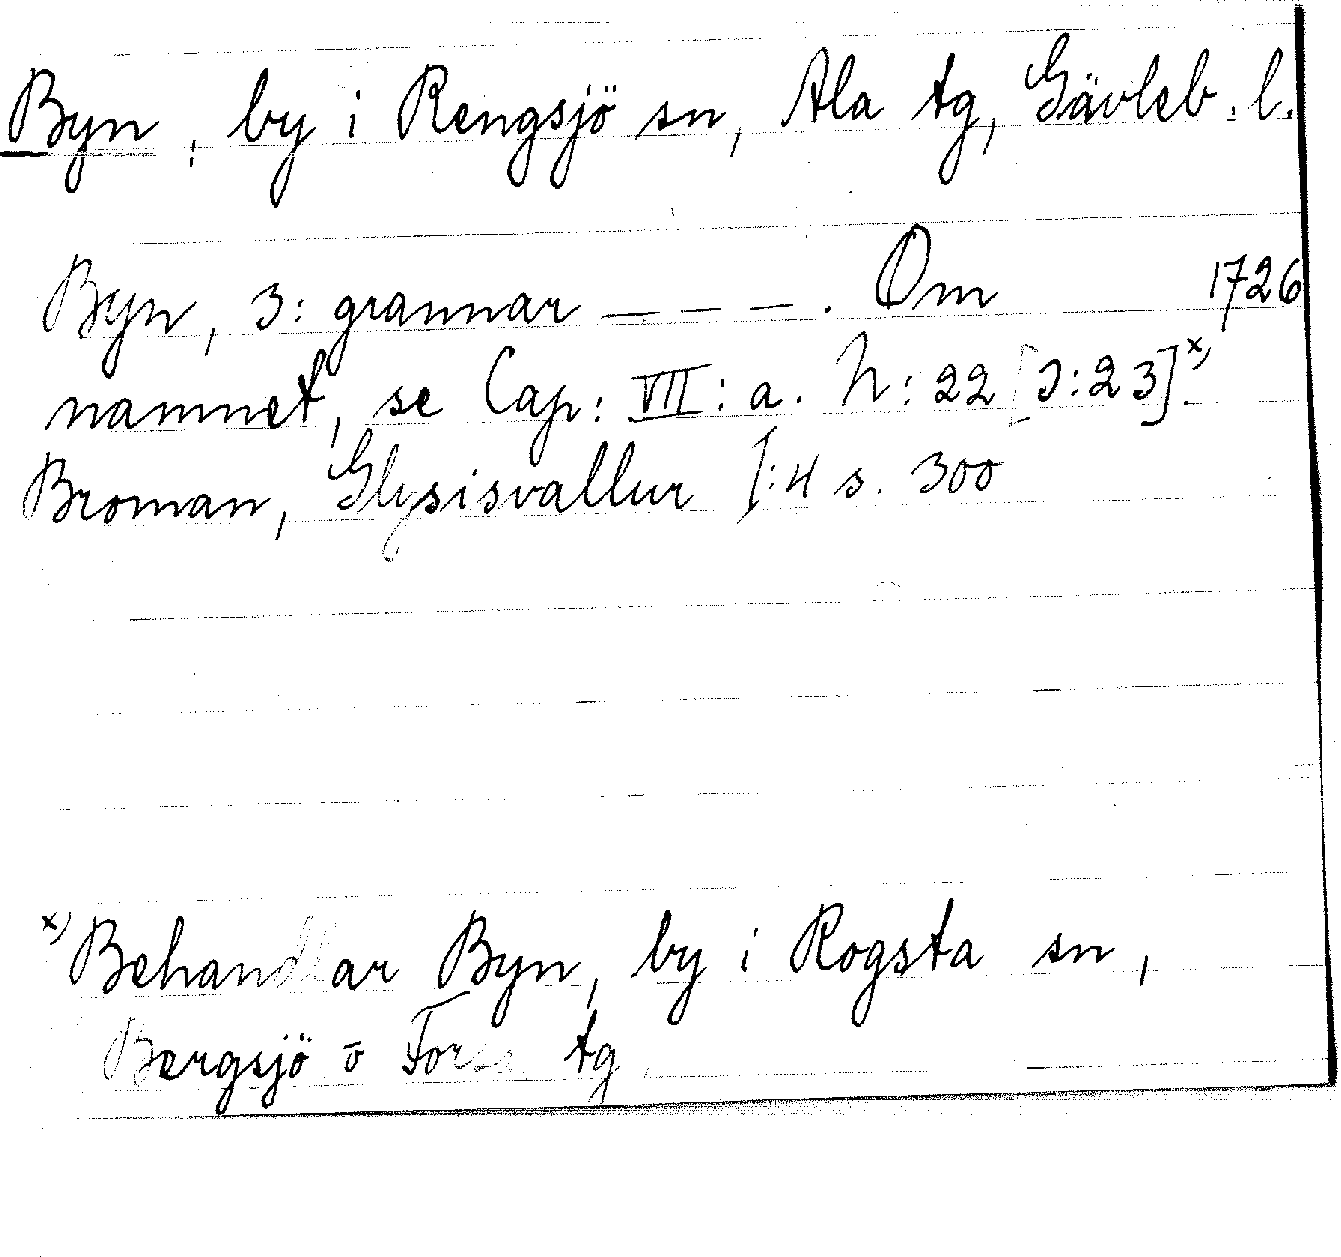 Byn, by i Rengsjö sn, Ala tg, Gävleb. l.
Byn, 3: grannar — — —. Om 1726
namnet, se Cap: VII: a. N: 22 [J:23]x)
Broman, Glysisvallur I:4 s. 300
x) Behandlar Byn, by i Rogsta sn,
Bergsjö o Forsa tg